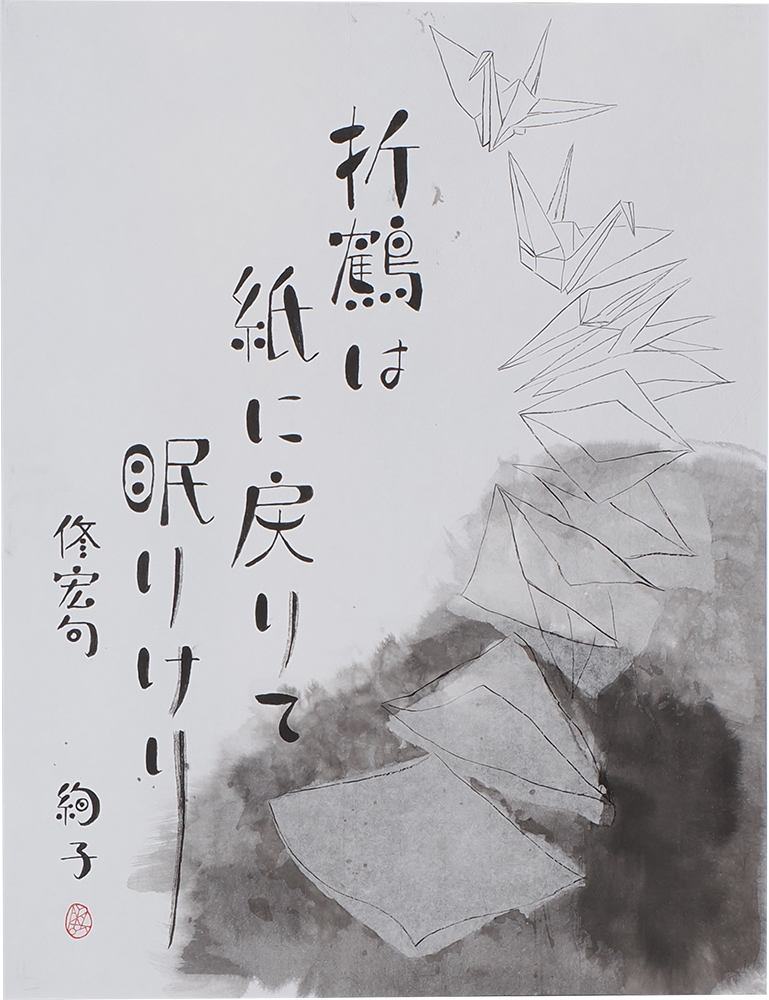 折鶴は
紙に戻りて
眠りけり
修宏句
絢子